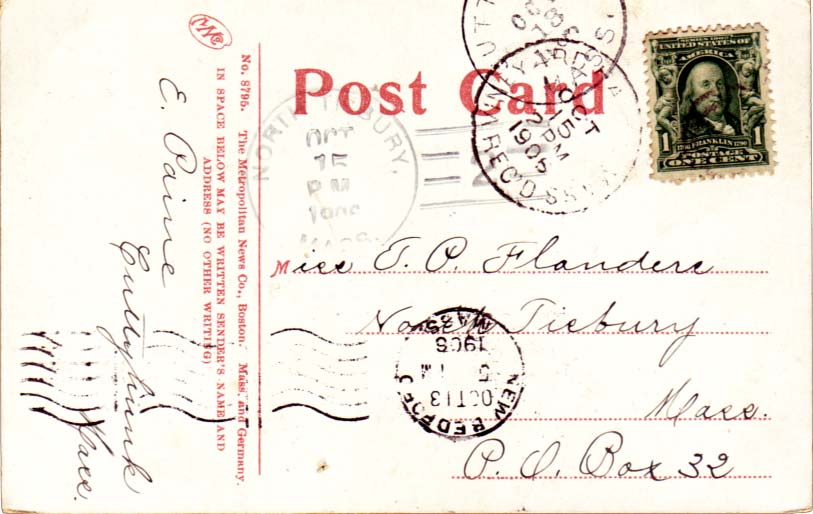 Post Card
No. 8795. The Metropolitan News Co., Boston. Mass. and Germany.
IN SPACE BELOW MAY BE WRITTEN SENDER'S NAME AND
ADDRESS (NO OTHER WRITING)
E. Paine
Cuttyhunk
Mass.
SERIES 1902
UNITED STATES OF
AMERICA
1 FRANKLIN 1
POSTAGE
ONE CENT
OCT
15
2 PM
1905
REC'D
NORTH TISBURY,
OCT
15
P M
MASS.
Miss E. P. Flanders
North Tisbury
Mass.
P. O. Box 32
NEW BEDFORD
OCT 13
5
1905
MASS